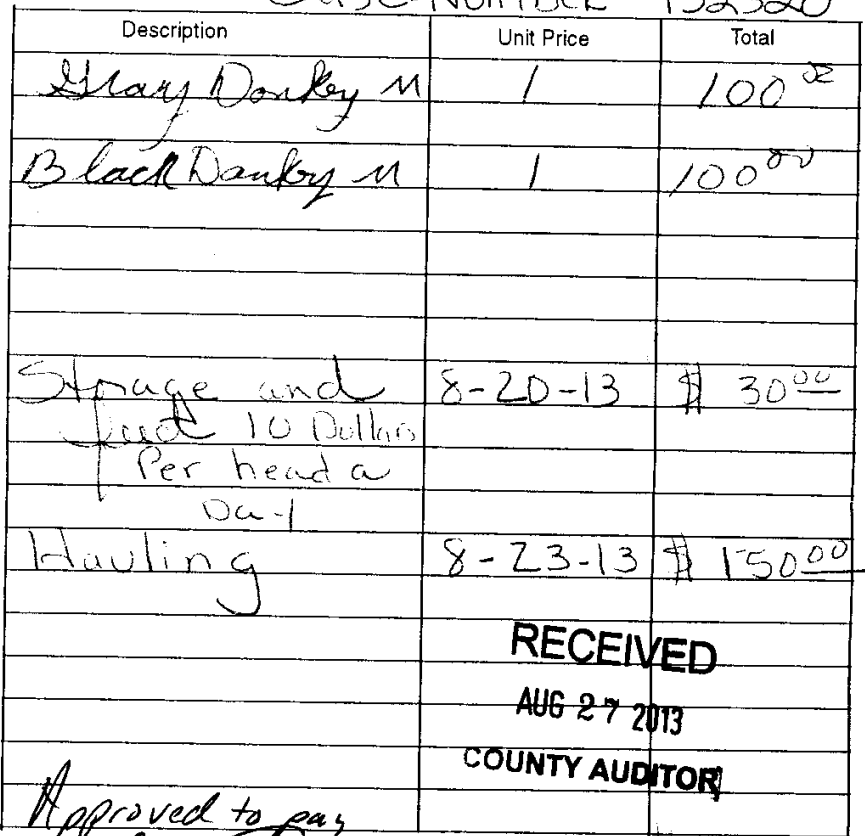 Case Number 132320
Description Unit Price Total
Gray Donkey M 1 100 00
Black Donkey M 1 100 00
Storage and 8-20-13 $ 30 00
feed 10 Dollars
Per head a
Day
Hauling 8-23-13 $ 150 00
RECEIVED
AUG 27 2013
COUNTY AUDITOR
Approved to pay